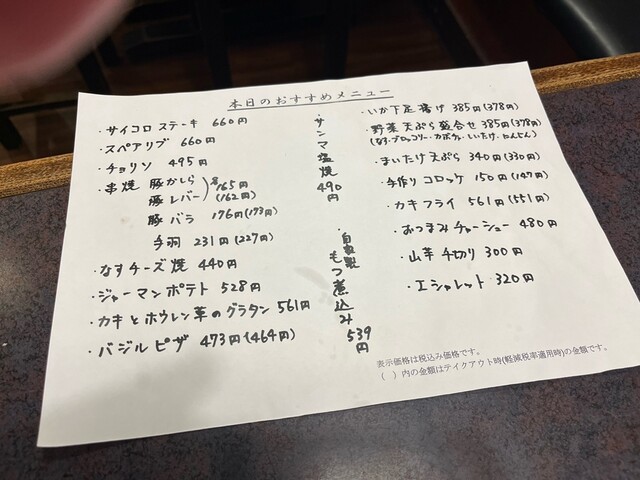 本日のおすすめメニュー
・サイコロステーキ 660円
・スペアリブ 660円
・チョリソ 495円
・串焼 豚かしら
豚レバー
各165円
(162円)
豚バラ 176円(173円)
手羽 231円(227円)
・なすチーズ焼 440円
・ジャーマンポテト 528円
・カキとホウレン草のグラタン 561円
・バジルピザ 473円(464円)
・サンマ塩焼 490円
・自家製もつ煮込み 539円
・いか下足揚げ 385円(378円)
・野菜天ぷら盛合せ 385円(378円)
(なす・ブロッコリー・カボチャ・しいたけ・にんじん)
・まいたけ天ぷら 340円(330円)
・手作りコロッケ 150円(147円)
・カキフライ 561円(551円)
・おつまみチャーシュー 480円
・山芋千切り 300円
・エシャレット 320円
表示価格は税込み価格です。
( )内の金額はテイクアウト時(軽減税率適用時)の金額です。